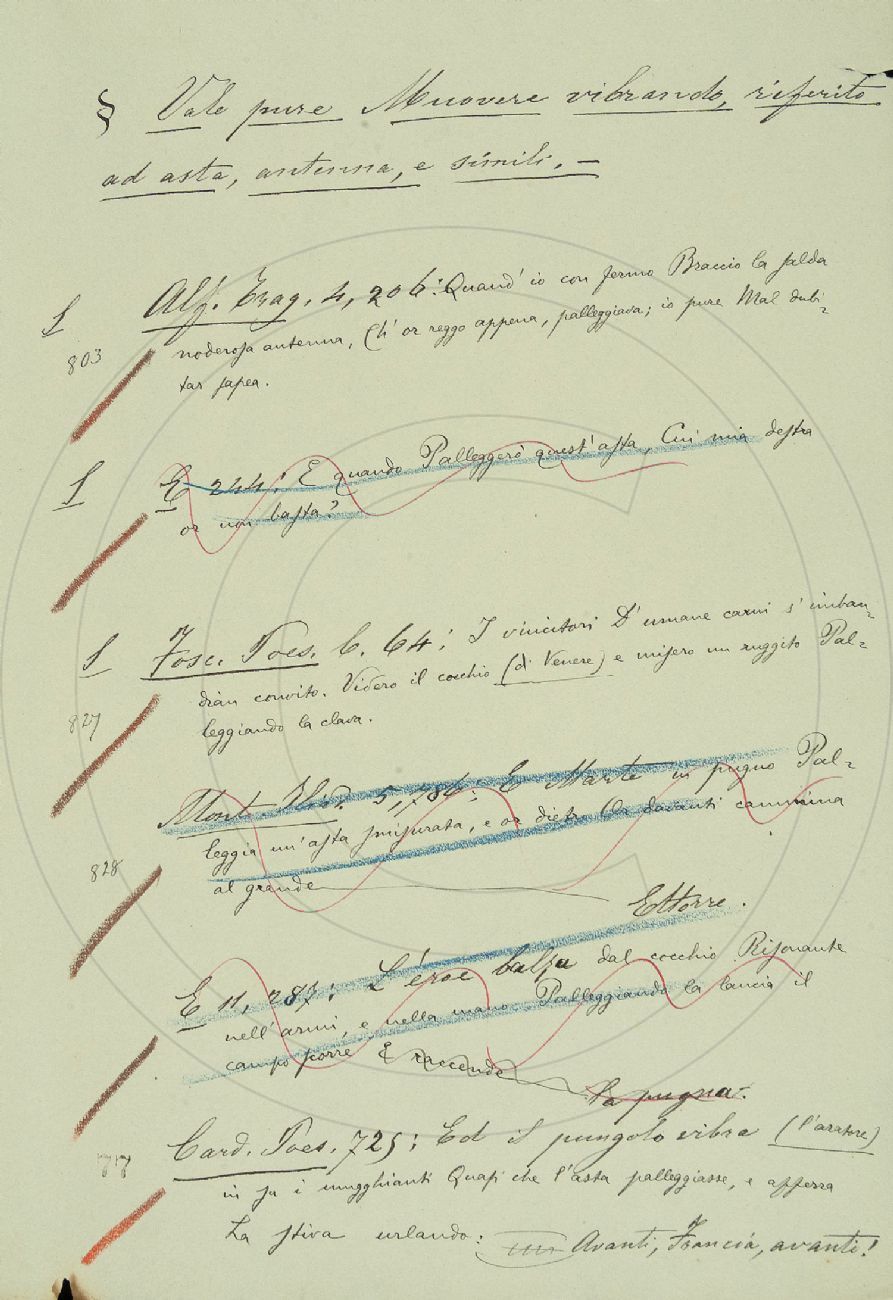 § Vale pure Muovere vibrando, riferito
ad asta, antenna, e simili. —
S Alf. Trag. 4, 206: Quand' io con fermo Braccio la salda
803 noderosa antenna, Ch' or reggo appena, palleggiava; io pure Mal dubi-
tar sapea.
S E 244: E quando Palleggerò quest'asta, Cui mia destra
or non basta?
S Fosc. Poes. C. 64: I vincitori D' umane carni s' imban-
827 dian convito. Videro il cocchio (di Venere) e misero un ruggito Pal-
leggiando la clava.
Mont. Iliad. 5, 784: E Marte in pugno Pal-
leggia un'asta smisurata, e or dietro Or davanti cammina
828 al grande
Ettorre.
E 11, 287: L'eroe balza dal cocchio Risonante
nell'armi, e nella mano Palleggiando la lancia il
campo corre E raccende
la pugna.
Card. Poes. 725: Ed il pungolo vibra (l'aratore)
77 in su i mugghianti Quasi che l'asta palleggiasse, e afferra
La stiva urlando: Avanti, Francia, avanti!